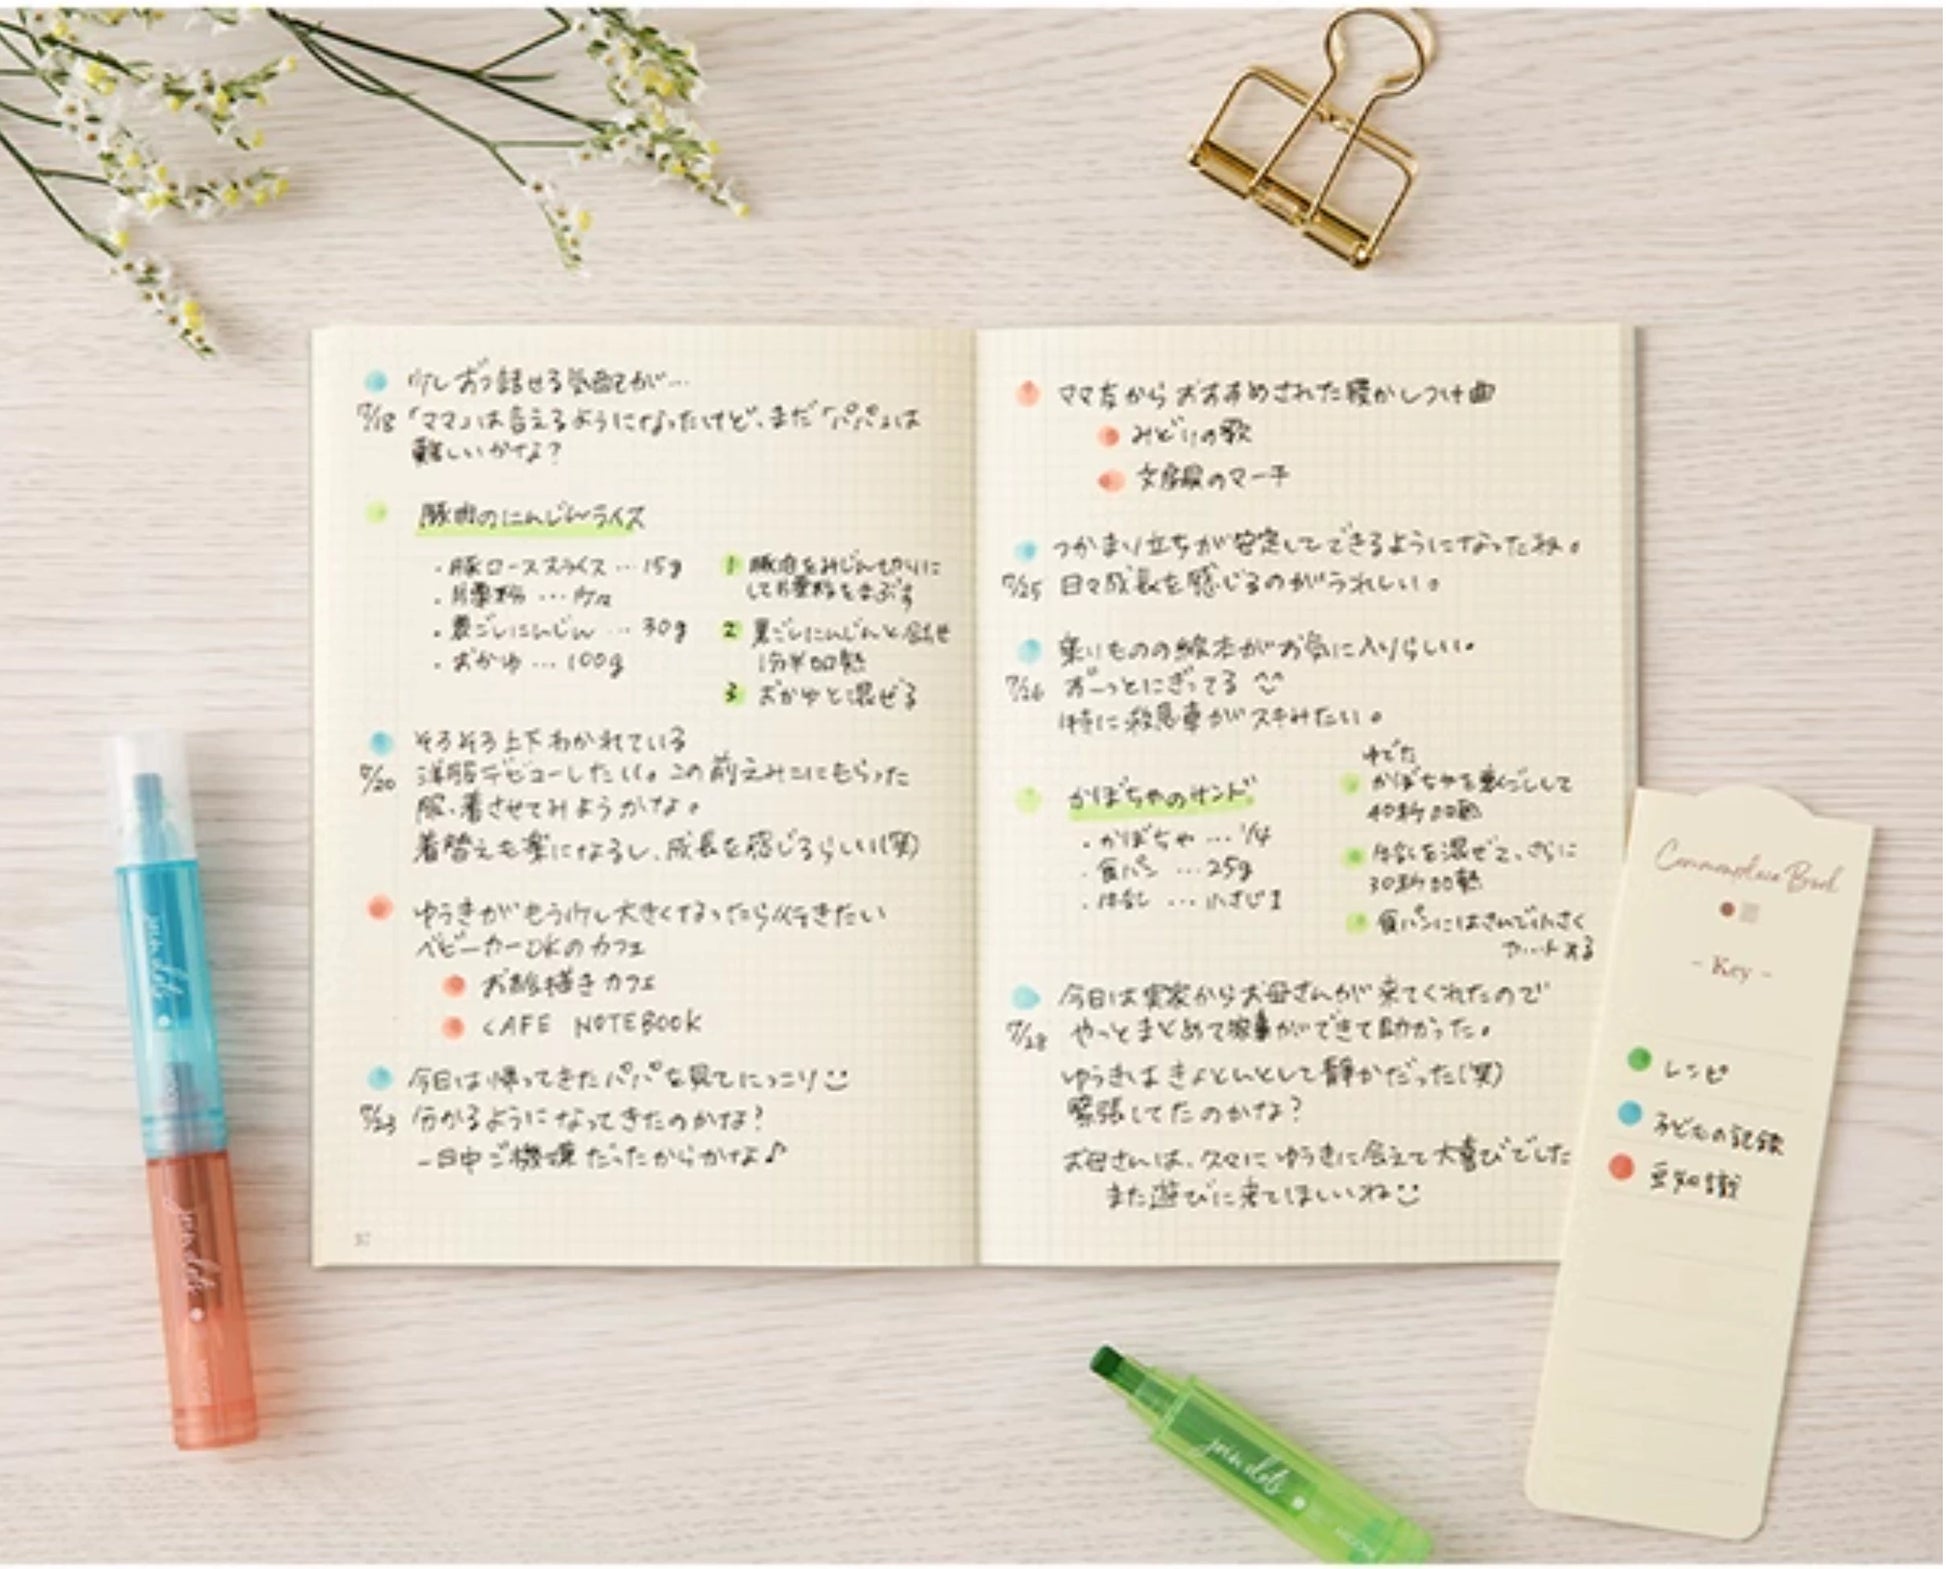 少しずつ話せる気配が…
7/18 「ママ」は言えるようになったけど、まだ「パパ」は
難しいかな？
豚肉のにんじんライス
・豚ローススライス … 15g
・片栗粉 …
・裏ごしにんじん … 30g
・おかゆ … 100g
1 豚肉をみじん切りに
して片栗粉をまぶす
2 裏ごしにんじんと合せ
1分半加熱
3 おかゆと混ぜる
そろそろ上下わかれている
7/20 洋服デビューしたい。この前えみこにもらった
服、着させてみようかな。
着替えも楽になるし、成長を感じるらしい(笑)
ゆうきがもう少し大きくなったら行きたい
ベビーカーOKのカフェ
お絵描きカフェ
CAFE NOTEBOOK
今日は帰ってきたパパを見てにっこり
7/23 分かるようになってきたのかな？
一日中ご機嫌だったからかな♪
ママ友からおすすめされた寝かしつけ曲
みどりの歌
文房具のマーチ
つかまり立ちが安定してできるようになったね。
7/25 日々成長を感じるのがうれしい。
乗りものの絵本がお気に入りらしい。
7/26 ずーっとにぎってる ^^
特に救急車がスキみたい。
かぼちゃのサンド
・かぼちゃ … 1/4
・食パン … 25g
・牛乳 … 小さじ1
ゆでた
かぼちゃを裏ごしして
40秒加熱
牛乳を混ぜて、さらに
30秒加熱
食パンにはさんで小さく
カットする
今日は実家からお母さんが来てくれたので
7/28 やっとまとめて家事ができて助かった。
ゆうきはきょとんとして静かだった(笑)
緊張してたのかな？
お母さんは、久々にゆうきに会えて大喜びでした
また遊びに来てほしいね
Commonplace Book
- Key -
レシピ
子どもの記録
豆知識
pin dots
pin dots
pin dots